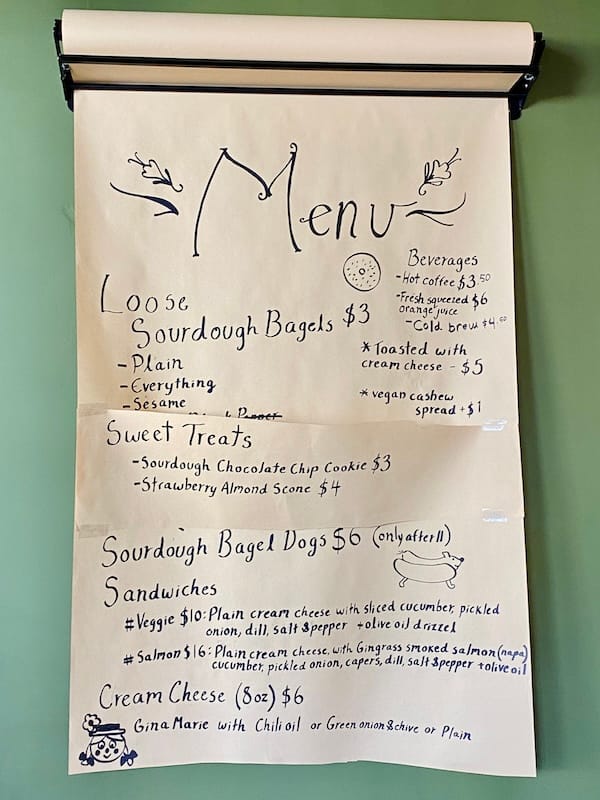 Menu
Loose
Sourdough Bagels $3
- Plain
- Everything
- Sesame
Pepper
Beverages
- Hot coffee $3.50
- Fresh squeezed $6
orange juice
- Cold brew $4.50
* Toasted with
cream cheese - $5
* vegan cashew
spread + $1
Sweet Treats
- Sourdough Chocolate Chip Cookie $3
- Strawberry Almond Scone $4
Sourdough Bagel Dogs $6 (only after 11)
Sandwiches
# Veggie $10: Plain cream cheese with sliced cucumber, pickled
onion, dill, salt & pepper + olive oil drizzel
# Salmon $16: Plain cream cheese, with Gingrass smoked salmon (napa)
cucumber, pickled onion, capers, dill, salt & pepper + olive oil
Cream Cheese (8oz) $6
Gina Marie with Chili oil or Green onion & chive or Plain